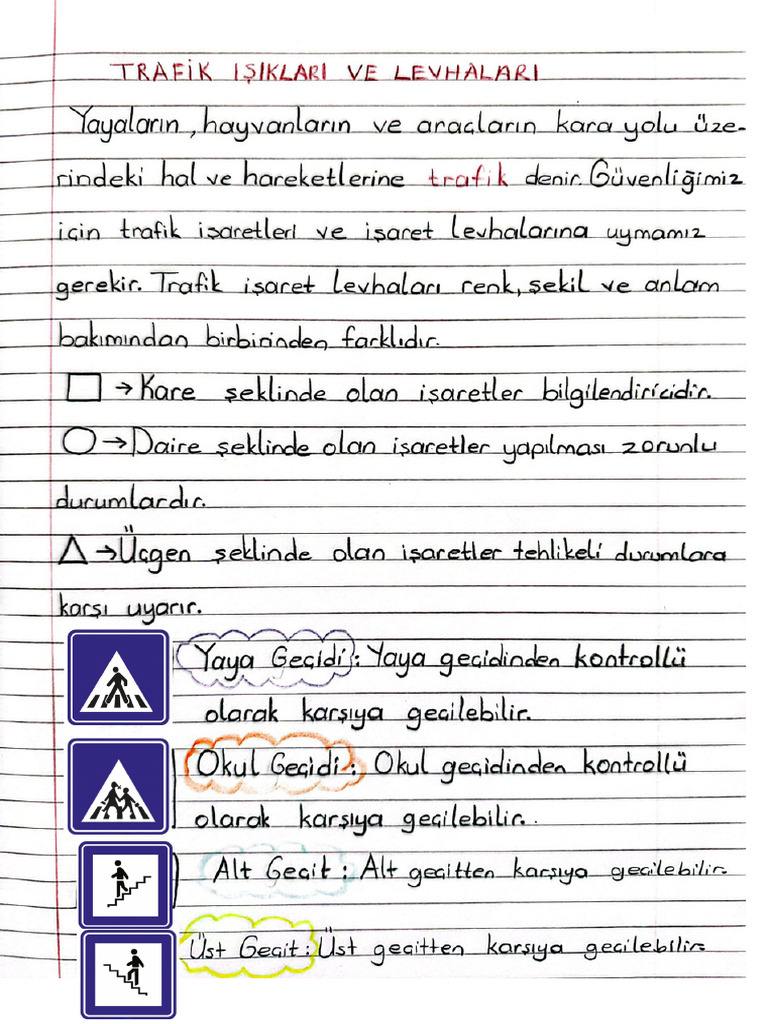 TRAFİK IŞIKLARI VE LEVHALARI
Yayaların, hayvanların ve araçların kara yolu üze-
rindeki hal ve hareketlerine trafik denir. Güvenliğimiz
için trafik işaretleri ve işaret levhalarına uymamız
gerekir. Trafik işaret levhaları renk, şekil ve anlam
bakımından birbirinden farklıdır.
□ → Kare şeklinde olan işaretler bilgilendiricidir.
○ → Daire şeklinde olan işaretler yapılması zorunlu
durumlardır.
△ → Üçgen şeklinde olan işaretler tehlikeli durumlara
karşı uyarır.
Yaya Geçidi : Yaya geçidinden kontrollü
olarak karşıya geçilebilir.
Okul Geçidi : Okul geçidinden kontrollü
olarak karşıya geçilebilir.
Alt Geçit : Alt geçitten karşıya geçilebilir.
Üst Geçit : Üst geçitten karşıya geçilebilir.